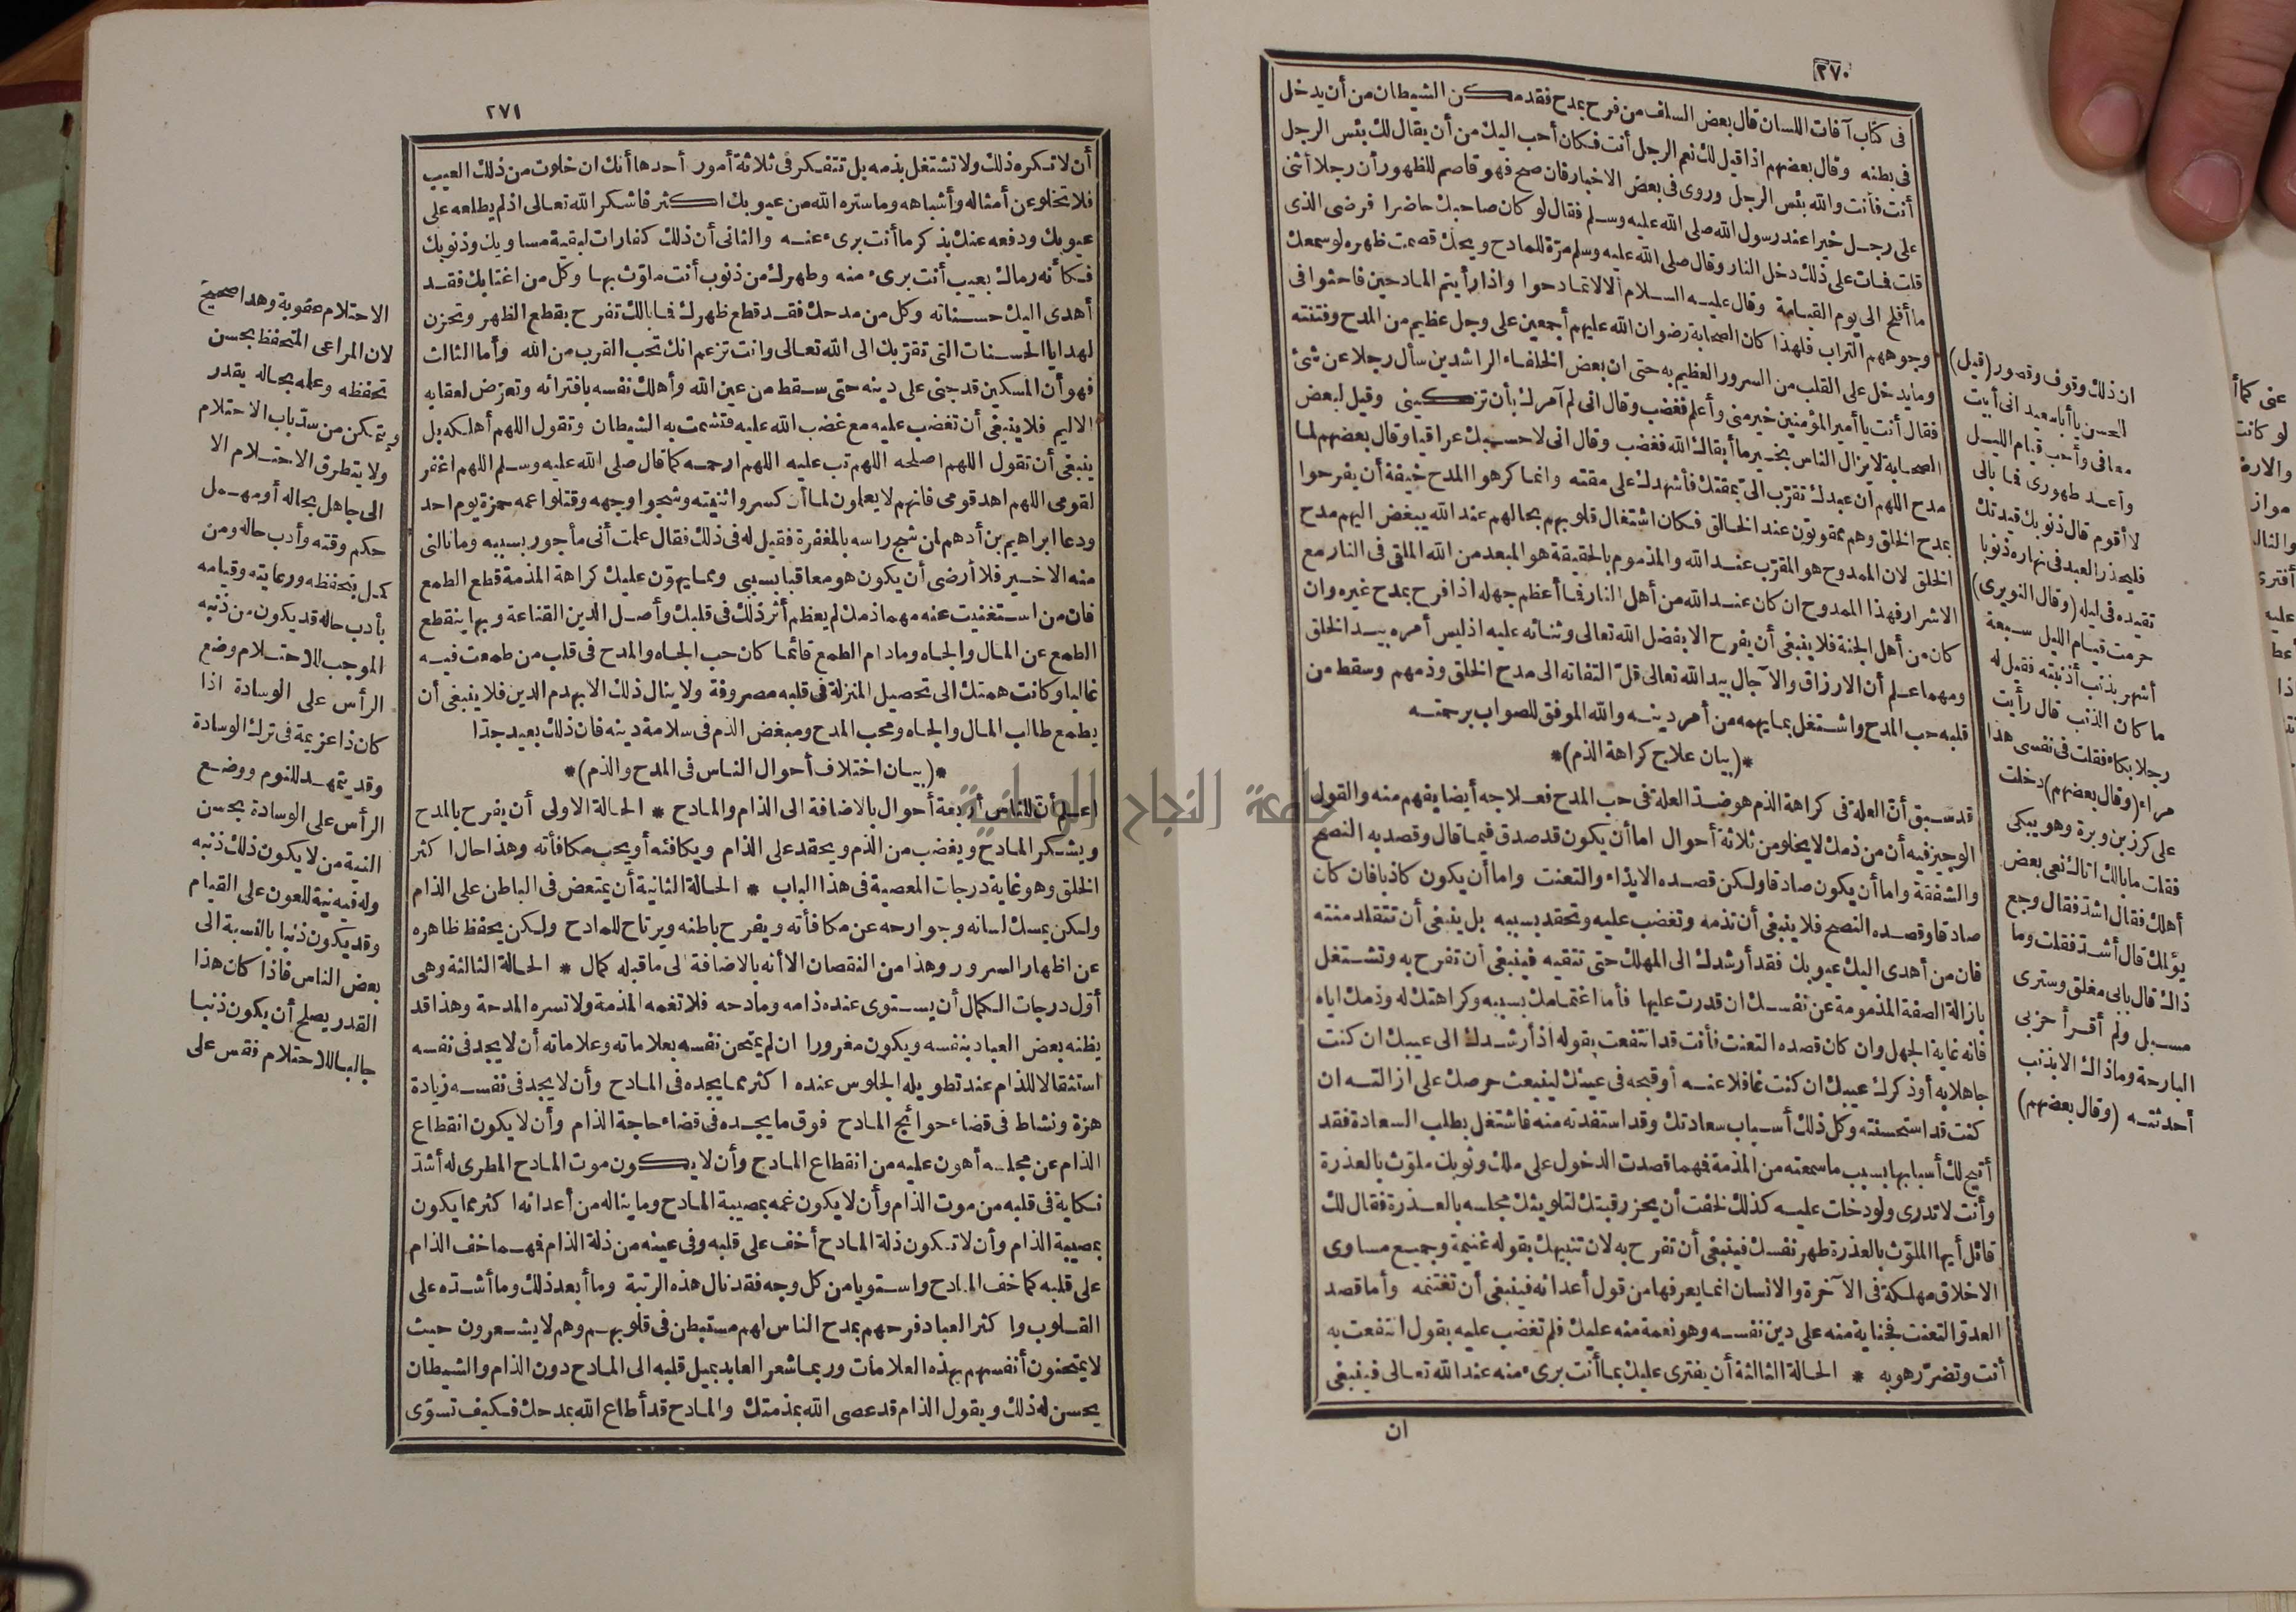 ٢٧٠
فى كتاب آفات اللسان قال بعض السلف من فرح بمدح فقد مكن الشيطان من أن يدخل
فى بطنه وقال بعضهم اذا قيل لك نعم الرجل أنت فكان أحب اليك من أن يقال لك بئس الرجل
أنت فأنت والله بئس الرجل وروى فى بعض الاخبار فان صح فهو قاصم للظهور أن رجلا أثنى
على رجل خيرا عند رسول الله صلى الله عليه وسلم فقال لو كان صاحبك حاضرا فرضى الذى
قلت فمات على ذلك دخل النار وقال صلى الله عليه وسلم مرّة للمادح ويحك قصمت ظهره لو سمعك
ما أفلح الى يوم القيامة وقال عليه السلام ألا لا تمادحوا واذا رأيتم المادحين فاحثوا فى
وجوههم التراب فلهذا كان الصحابة رضوان الله عليهم أجمعين على وجل عظيم من المدح وفتنته
وما يدخل على القلب من السرور العظيم به حتى ان بعض الخلفاء الراشدين سأل رجلا عن شئ
فقال أنت يا أمير المؤمنين خير منى وأعلم فغضب وقال انى لم آمرك بأن تزكينى وقيل لبعض
الصحابة لا يزال الناس بخير ما أبقاك الله فغضب وقال انى لا حسبك عراقيا وقال بعضهم لما
مدح اللهم ان عبدك تقرّب الىّ بمقتك فأشهدك على مقته وانما كرهوا المدح خيفة أن يفرحوا
بمدح الخلق وهم ممقوتون عند الخالق فكان اشتغال قلوبهم بحالهم عند الله يبغض اليهم مدح
الخلق لان الممدوح هو المقرّب عند الله والمذموم بالحقيقة هو المبعد من الله الملقى فى النار مع
الاشرار فهذا الممدوح ان كان عند الله من أهل النار فما أعظم جهله اذا فرح بمدح غيره وان
كان من أهل الجنة فلا ينبغى أن يفرح الا بفضل الله تعالى وثنائه عليه اذ ليس أمره بيد الخلق
ومهما علم أن الارزاق والآجال بيد الله تعالى قلّ التفاته الى مدح الخلق وذمهم وسقط من
قلبه حب المدح واشتغل بما يهمه من أمر دينه والله الموفق للصواب برحمته
*(بيان علاج كراهة الذم)*
قد سبق أنّ العلة فى كراهة الذم هو ضدّ العلة فى حب المدح فعلاجه أيضا يفهم منه والقول
الوجيز فيه أن من ذمك لا يخلو من ثلاثة أحوال اما أن يكون قد صدق فيما قال وقصد به النصح
والشفقة واما أن يكون صادقا ولكن قصده الايذاء والتعنت واما أن يكون كاذبا فان كان
صادقا وقصده النصح فلا ينبغى أن تذمه وتغضب عليه وتحقد بسببه بل ينبغى أن تتقلد منته
فان من أهدى اليك عيوبك فقد أرشدك الى المهلك حتى تتقيه فينبغى أن تفرح به وتشتغل
بازالة الصفة المذمومة عن نفسك ان قدرت عليها فأما اغتمامك بسببه وكراهتك له وذمك اياه
فانه غاية الجهل وان كان قصده التعنت فأنت قد انتفعت بقوله اذ أرشدك الى عيبك ان كنت
جاهلا به أو ذكرك عيبك ان كنت غافلا عنه أو قبحه فى عينك لينبعث حرصك على ازالته ان
كنت قد استحسنته وكل ذلك أسباب سعادتك وقد استفدته منه فاشتغل بطلب السعادة فقد
أتيح لك أسبابها بسبب ما سمعته من المذمة فمهما قصدت الدخول على ملك وثوبك ملوّث بالعذرة
وأنت لا تدرى ولو دخلت عليه كذلك لخفت أن يحز رقبتك لتلويثك مجلسه بالعذرة فقال لك
قائل أيها الملوّث بالعذرة طهر نفسك فينبغى أن تفرح به لان تنبيهك بقوله غنيمة وجميع مساوى
الاخلاق مهلكة فى الآخرة والانسان انما يعرفها من قول أعدائه فينبغى أن تغتنمه وأما قصد
العدوّ التعنت فجناية منه على دين نفسه وهو نعمة منه عليك فلم تغضب عليه بقول انتفعت به
أنت وتضرّر هو به * الحالة الثالثة أن يفترى عليك بما أنت برىء منه عند الله تعالى فينبغى
ان
ان ذلك وقوف وقصور (قيل)
الحسن يا أبا سعيد انى أبيت
معافى وأحب قيام الليل
وأعد طهورى فما بالى
لا أقوم قال ذنوبك قيدتك
فليحذر العبد فى نهاره ذنوبا
تقيده فى ليله (وقال الثورى)
حرمت قيام الليل سبعة
أشهر بذنب أذنبته فقيل له
ما كان الذنب قال رأيت
رجلا بكاء فقلت فى نفسى هذا
مراء (وقال بعضهم) دخلت
على كرز بن وبرة وهو يبكى
فقلت ما بالك أتاك نعى بعض
أهلك فقال اشد فقال وجع
يؤلمك قال أشد فقلت وما
ذاك قال بابى مغلق وسترى
مسبل ولم أقرأ حزبى
البارحة وما ذاك الا بذنب
أحدثته (وقال بعضهم)
٢٧١
أن لا تكره ذلك ولا تشتغل بذمه بل تتفكر فى ثلاثة أمور أحدها أنك ان خلوت من ذلك العيب
فلا تخلو عن أمثاله وأشباهه وما ستره الله من عيوبك اكثر فاشكر الله تعالى اذ لم يطلعه على
عيوبك ودفعه عنك بذكر ما أنت برىء عنه والثانى أن ذلك كفارات لبقية مساويك وذنوبك
فكأنه رماك بعيب أنت برىء منه وطهرك من ذنوب أنت ملوّث بها وكل من اغتابك فقد
أهدى اليك حسناته وكل من مدحك فقد قطع ظهرك فما بالك تفرح بقطع الظهر وتحزن
لهدايا الحسنات التى تقرّبك الى الله تعالى وانت تزعم انك تحب القرب من الله وأما الثالث
فهو أن المسكين قد جنى على دينه حتى سقط من عين الله وأهلك نفسه بافترائه وتعرّض لعقابه
الاليم فلا ينبغى أن تغضب عليه مع غضب الله عليه فتشمت به الشيطان وتقول اللهم أهلكه بل
ينبغى أن تقول اللهم اصلحه اللهم تب عليه اللهم ارحمه كما قال صلى الله عليه وسلم اللهم اغفر
لقومى اللهم اهد قومى فانهم لا يعلمون لما أن كسروا ثنيته وشجوا وجهه وقتلوا عمه حمزة يوم احد
ودعا ابراهيم بن أدهم لمن شج راسه بالمغفرة فقيل له فى ذلك فقال علمت أنى مأجور بسببه وما نالنى
منه الا خير فلا أرضى أن يكون هو معاقبا بسببى ومما يهوّن عليك كراهة المذمة قطع الطمع
فان من استغنيت عنه مهما ذمك لم يعظم أثر ذلك فى قلبك وأصل الدين القناعة وبها ينقطع
الطمع عن المال والجاه وما دام الطمع قائما كان حب الجاه والمدح فى قلب من طمعت فيه
غالبا وكانت همتك الى تحصيل المنزلة فى قلبه مصروفة ولا ينال ذلك الا بهدم الدين فلا ينبغى أن
يطمع طالب المال والجاه ومحب المدح ومبغض الذم فى سلامة دينه فان ذلك بعيد جدّا
*(بيان اختلاف أحوال الناس فى المدح والذم)*
اعلم أن للناس أربعة أحوال بالاضافة الى الذام والمادح * الحالة الاولى أن يفرح بالمدح
ويشكر المادح ويغضب من الذم ويحقد على الذام ويكافئه أو يحب مكافأته وهذا حال اكثر
الخلق وهو غاية درجات المعصية فى هذا الباب * الحالة الثانية أن يمتعض فى الباطن على الذام
ولكن يمسك لسانه وجوارحه عن مكافأته ويفرح باطنه ويرتاح للمادح ولكن يحفظ ظاهره
عن اظهار السرور وهذا من النقصان الا أنه بالاضافة الى ما قبله كمال * الحالة الثالثة وهى
أوّل درجات الكمال أن يستوى عنده ذامه ومادحه فلا تغمه المذمة ولا تسره المدحة وهذا قد
يظنه بعض العباد بنفسه ويكون مغرورا ان لم يمتحن نفسه بعلاماته وعلاماته أن لا يجد فى نفسه
استثقالا للذام عند تطويله الجلوس عنده اكثر مما يجده فى المادح وأن لا يجد فى نفسه زيادة
هزة ونشاط فى قضاء حوائج المادح فوق ما يجده فى قضاء حاجة الذام وأن لا يكون انقطاع
الذام عن مجلسه أهون عليه من انقطاع المادح وأن لا يكون موت المادح المطرى له أشدّ
نكاية فى قلبه من موت الذام وأن لا يكون غمه بمصيبة المادح وما يناله من أعدائه اكثر مما يكون
بمصيبة الذام وأن لا تكون ذلة المادح أخف على قلبه وفى عينه من ذلة الذام فمهما خف الذام
على قلبه كما خف المادح واستويا من كل وجه فقد نال هذه الرتبة وما أبعد ذلك وما أشدّه على
القلوب واكثر العباد فرحهم بمدح الناس لهم مستبطن فى قلوبهم وهم لا يشعرون حيث
لا يمتحنون أنفسهم بهذه العلامات وربما شعر العابد بميل قلبه الى المادح دون الذام والشيطان
يحسن له ذلك ويقول الذام قد عصى الله بمذمتك والمادح قد أطاع الله بمدحك فكيف تسوّى
الاحتلام عقوبة وهذا صحيح
لان المراعى المتحفظ بحسن
تحفظه وعلمه بحاله يقدر
ويتمكن من سدّ باب الاحتلام
ولا يتطرق الاحتلام الا
الى جاهل بحاله أو مهمل
حكم وقته وأدب حاله ومن
كمل تحفظه ورعايته وقيامه
بأدب حاله قد يكون من ذنبه
الموجب للاحتلام وضع
الرأس على الوسادة اذا
كان ذا عزيمة فى ترك الوسادة
وقد يتمهد للنوم ووضع
الرأس على الوسادة بحسن
النية من لا يكون ذلك ذنبه
وله فيه نية للعون على القيام
وقد يكون ذنبا بالنسبة الى
بعض الناس فاذا كان هذا
القدر يصلح أن يكون ذنبا
جالبا للاحتلام فقس على
جامعة النجاح الوطنية